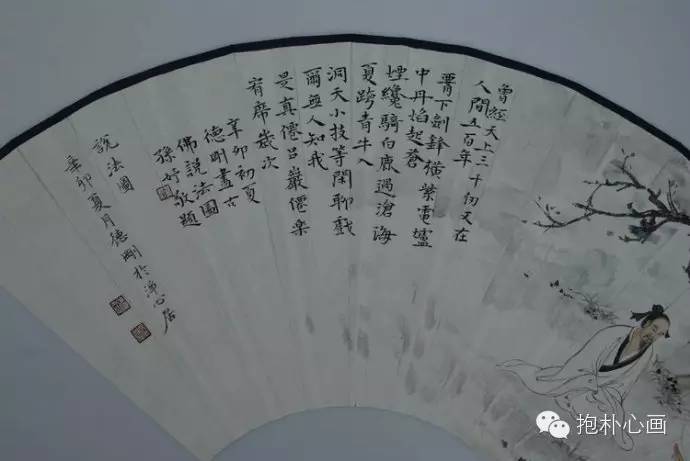 曾經天上三千仞又在
人間五百年
下劍鋒橫紫電爐
中丹焰起蒼
煙纔騎白鹿過滄海
夏跨青牛入
洞天小技等閑聊戲
爾無人知我
是真僊呂巖僊樂
席歲次
辛卯初夏
德剛畫古
佛說法圖
孫竹敬題
說法圖
辛卯夏月德剛於淨心居
抱朴心画